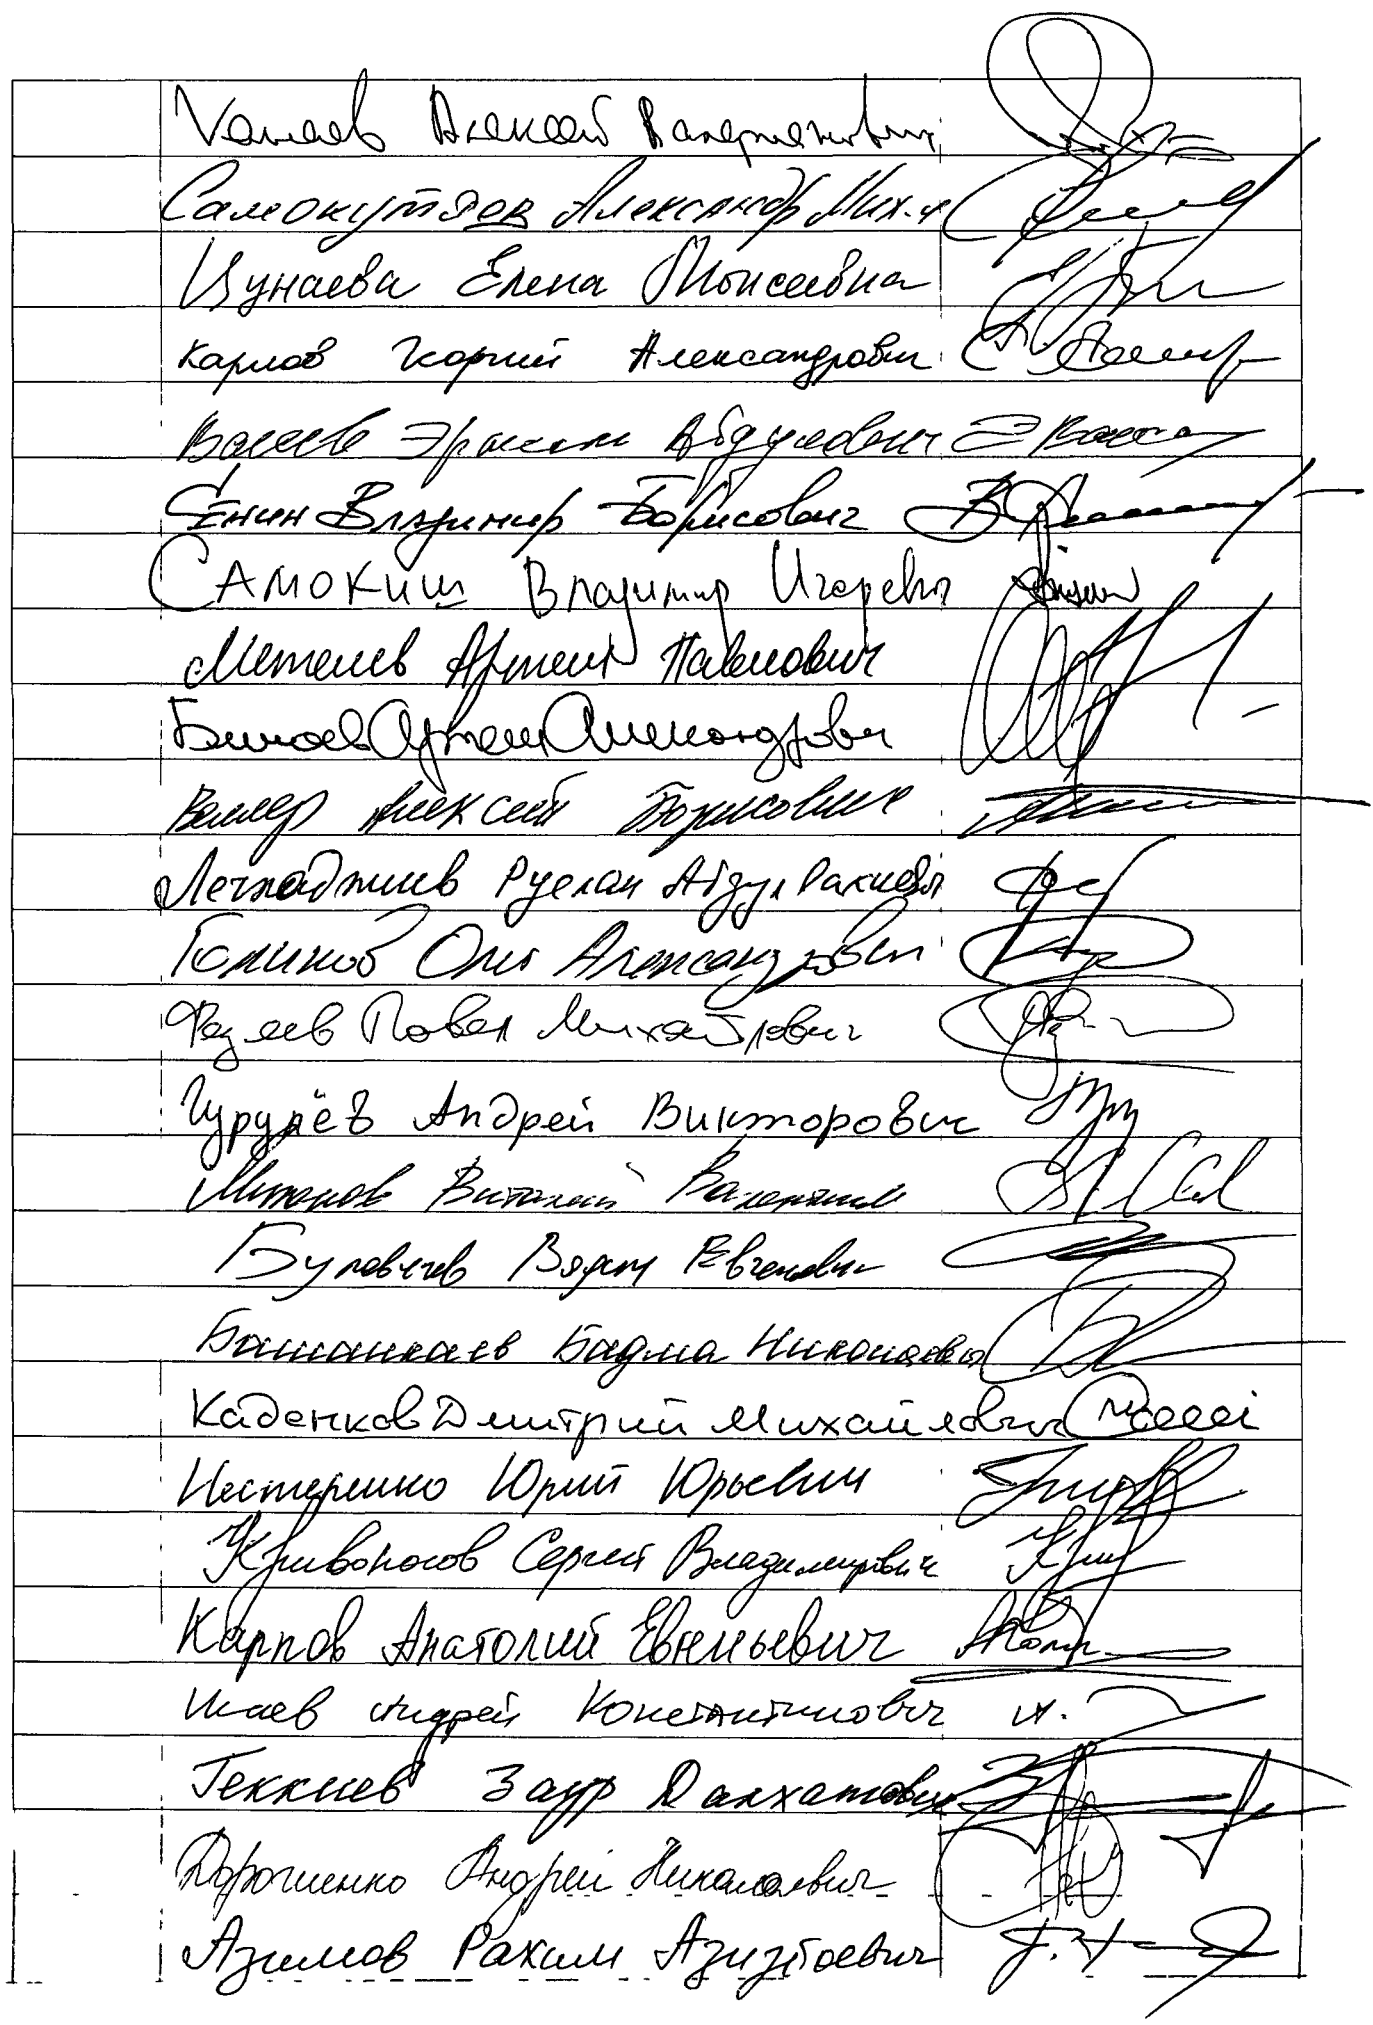 Канаев Алексей Валерианович
Самокутяев Александр Мих-ч
Цунаева Елена Моисеевна
Карлов Георгий Александрович
Валеев Эрнест Абдулович
Сенин Владимир Борисович
САМОКИШ Владимир Игоревич
Метелев Артем Павлович
Бичаев Артем Александрович
Веллер Алексей Борисович
Лечхаджиев Руслан АбдулРакиевич
Голиков Олег Александрович
Федяев Павел Михайлович
Гурулёв Андрей Викторович
Виталий Валентин
Булавинов Вадим Евгеньевич
Башанкаев Бадма Николаевич
Каденков Дмитрий Михайлович
Нестеренко Юрий Юрьевич
Кривоносов Сергей Владимирович
Карпов Анатолий Евгеньевич
Исаев Андрей Константинович
Геккиев Заур Далхатович
Дорошенко Андрей Николаевич
Азимов Рахим Азизбоевич